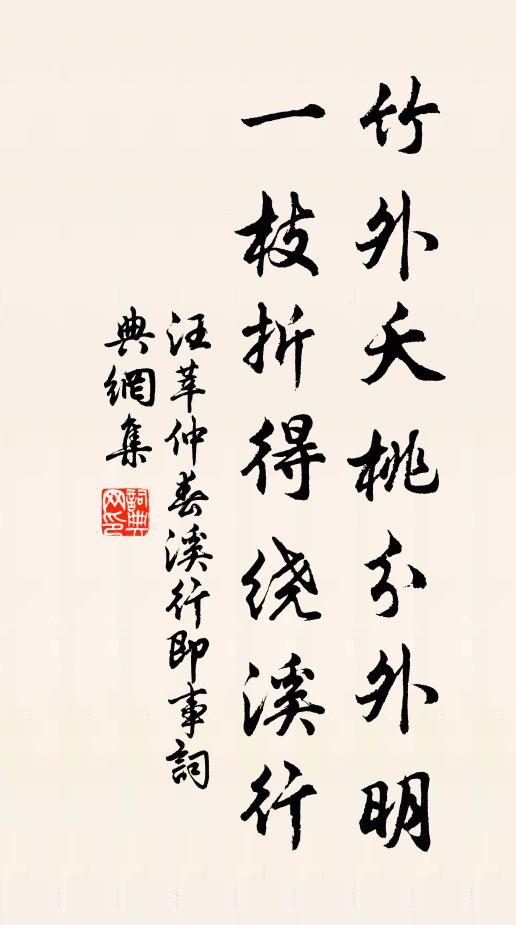 竹外夭桃分外明
一枝折得绕溪行
汪莘仲春溪行即事詞
典網集
詞典网印